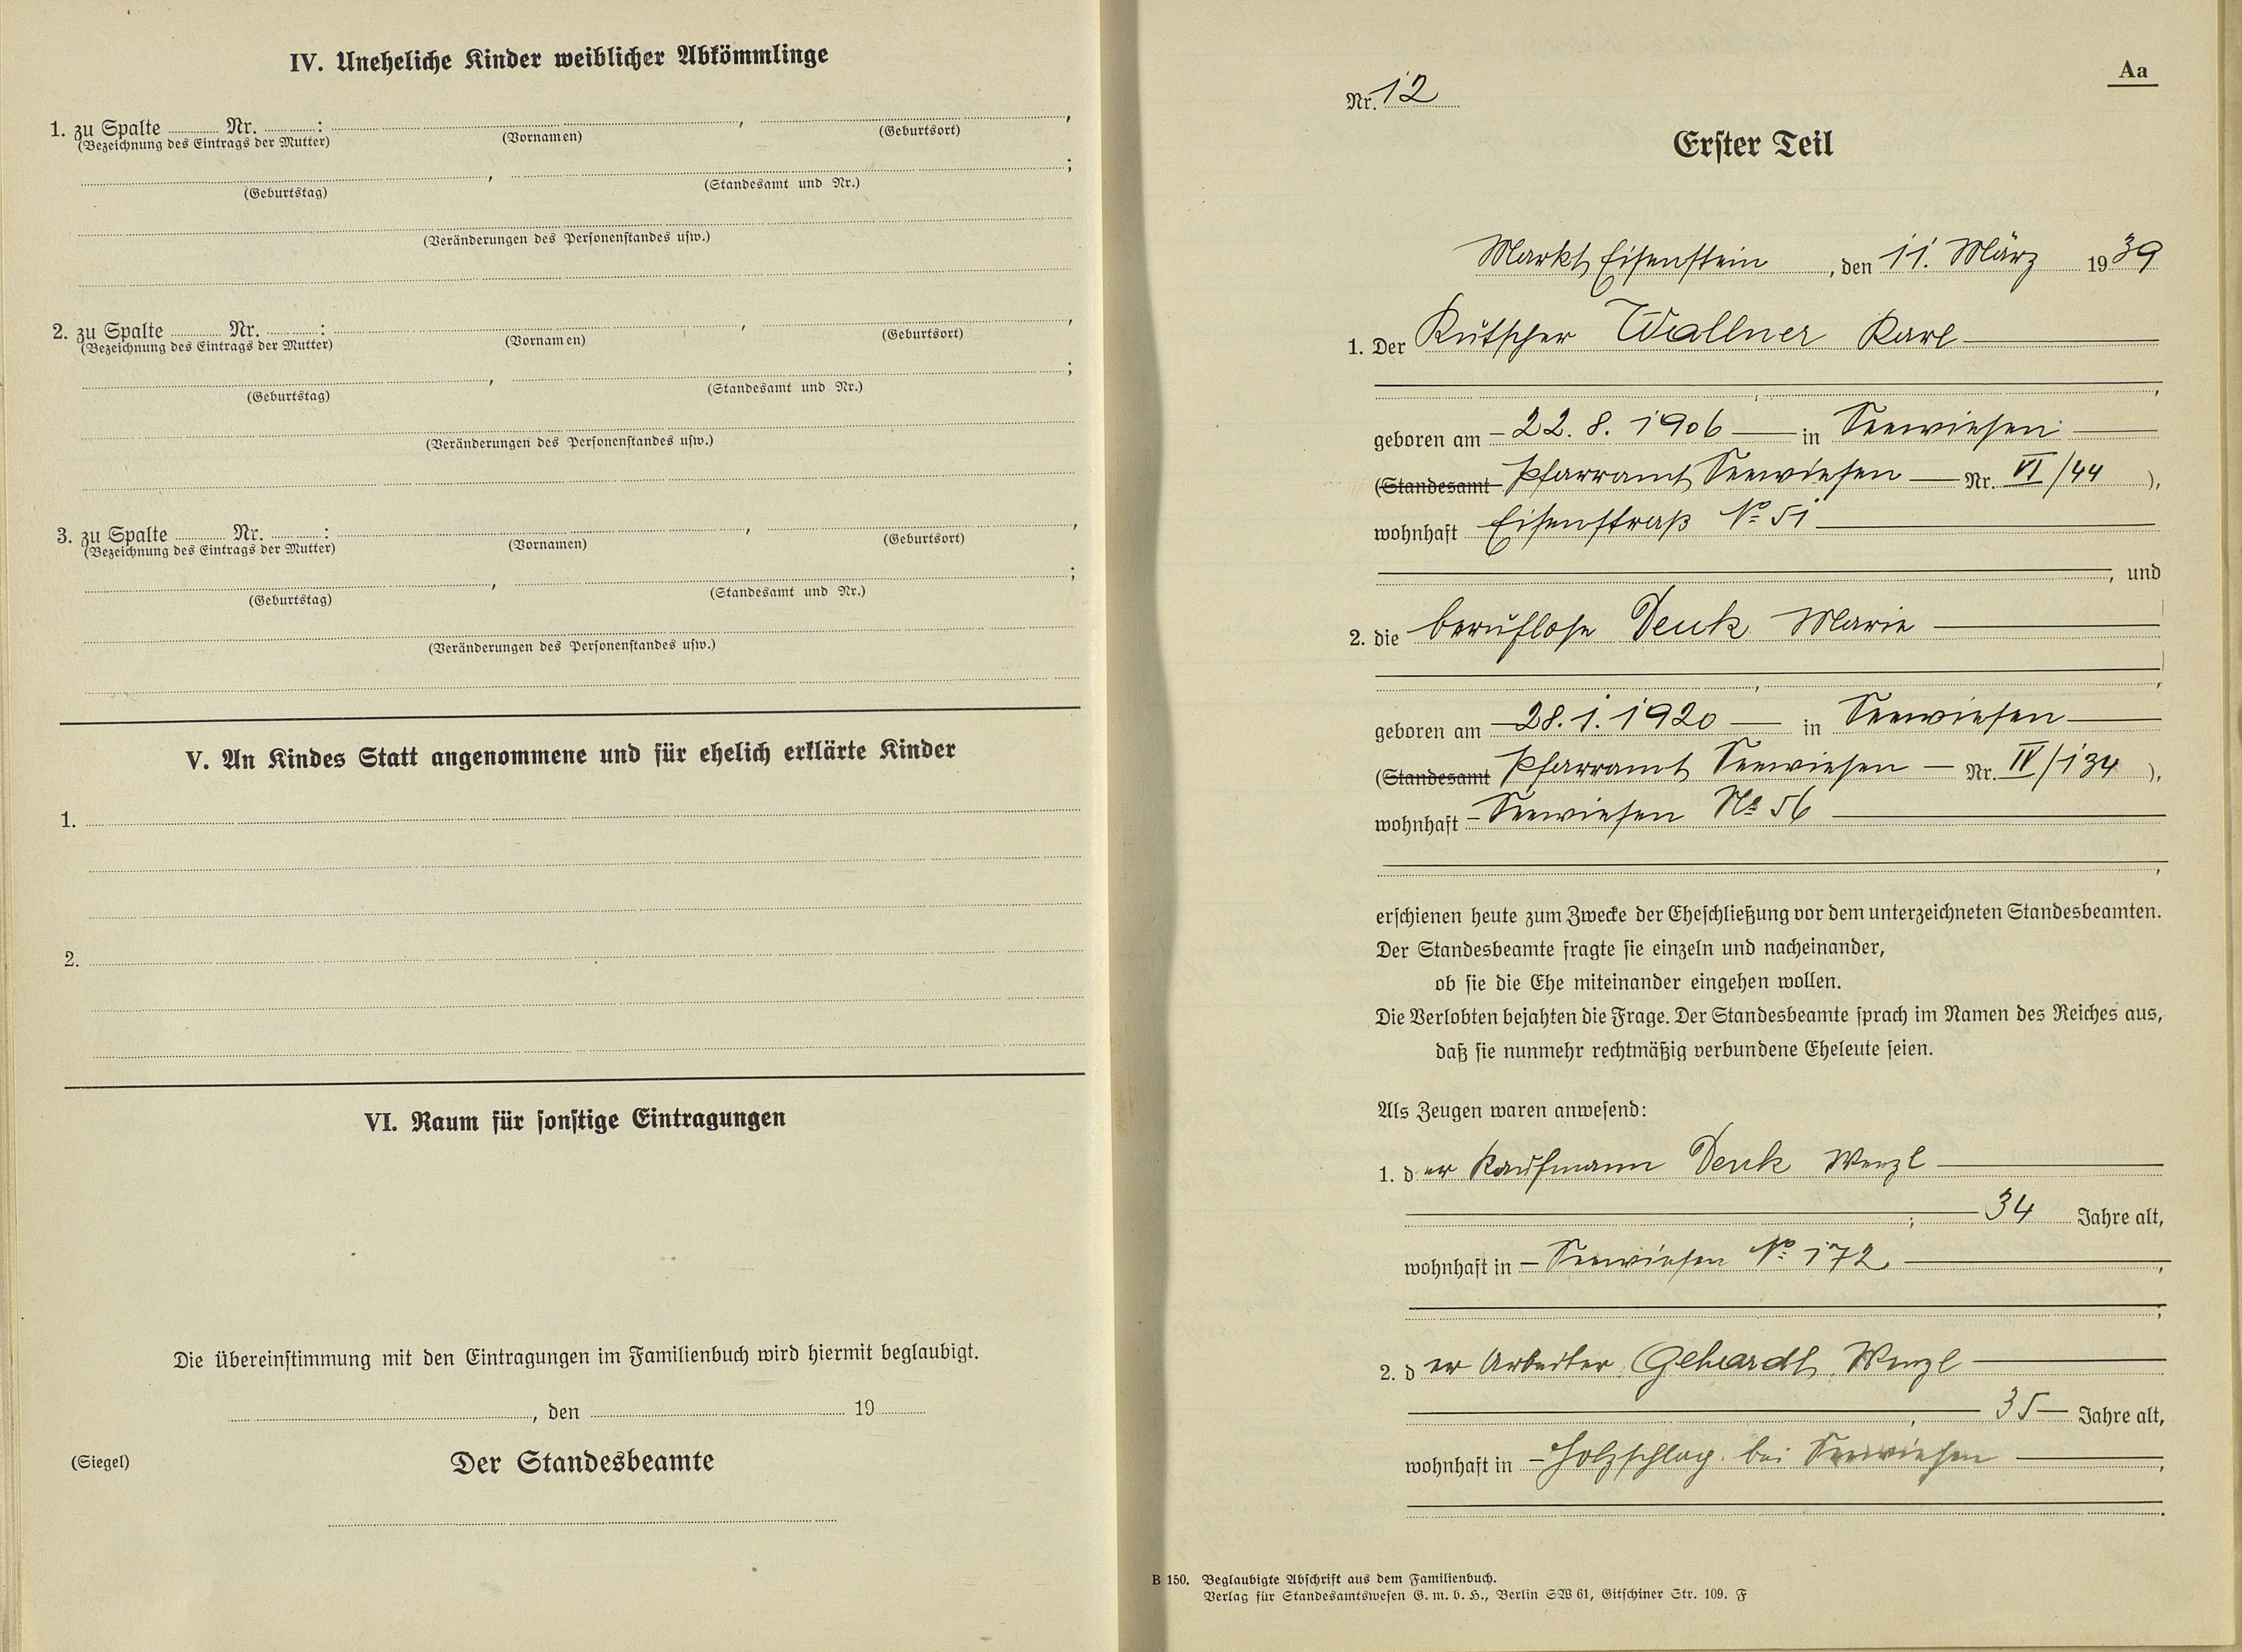 IV. Uneheliche Kinder weiblicher Abkömmlinge
1. zu Spalte Nr. : , ,
(Bezeichnung des Eintrags der Mutter) (Vornamen) (Geburtsort)
, ;
(Geburtstag) (Standesamt und Nr.)
(Veränderungen des Personenstandes usw.)
2. zu Spalte Nr. : , ,
(Bezeichnung des Eintrags der Mutter) (Vornamen) (Geburtsort)
, ;
(Geburtstag) (Standesamt und Nr.)
(Veränderungen des Personenstandes usw.)
3. zu Spalte Nr. : , ,
(Bezeichnung des Eintrags der Mutter) (Vornamen) (Geburtsort)
, ;
(Geburtstag) (Standesamt und Nr.)
(Veränderungen des Personenstandes usw.)
V. An Kindes Statt angenommene und für ehelich erklärte Kinder
1.
2.
VI. Raum für sonstige Eintragungen
Die Übereinstimmung mit den Eintragungen im Familienbuch wird hiermit beglaubigt.
, den 19
(Siegel) Der Standesbeamte
Aa
Nr. 12
Erster Teil
Markt Eisenstein, den 11. März 1939
1. Der Kutscher Wallner Karl
,
geboren am 22. 8. 1906 in Seewiesen
(Standesamt Pfarramt Seewiesen Nr. VI/44),
wohnhaft Eisenstraß No 51
, und
2. die berufslose Denk Marie
,
geboren am 28. 1. 1920 in Seewiesen
(Standesamt Pfarramt Seewiesen Nr. IV/134),
wohnhaft Seewiesen No 56
,
erschienen heute zum Zwecke der Eheschließung vor dem unterzeichneten Standesbeamten.
Der Standesbeamte fragte sie einzeln und nacheinander,
ob sie die Ehe miteinander eingehen wollen.
Die Verlobten bejahten die Frage. Der Standesbeamte sprach im Namen des Reiches aus,
daß sie nunmehr rechtmäßig verbundene Eheleute seien.
Als Zeugen waren anwesend:
1. der Kaufmann Denk Wenzl
, 34 Jahre alt,
wohnhaft in Seewiesen No 172,
;
2. der Arbeiter Gehardt Wenzl
, 35 Jahre alt,
wohnhaft in Holzschlag bei Seewiesen,
.
B 150. Beglaubigte Abschrift aus dem Familienbuch.
Verlag für Standesamtswesen G. m. b. H., Berlin SW 61, Gitschiner Str. 109. F